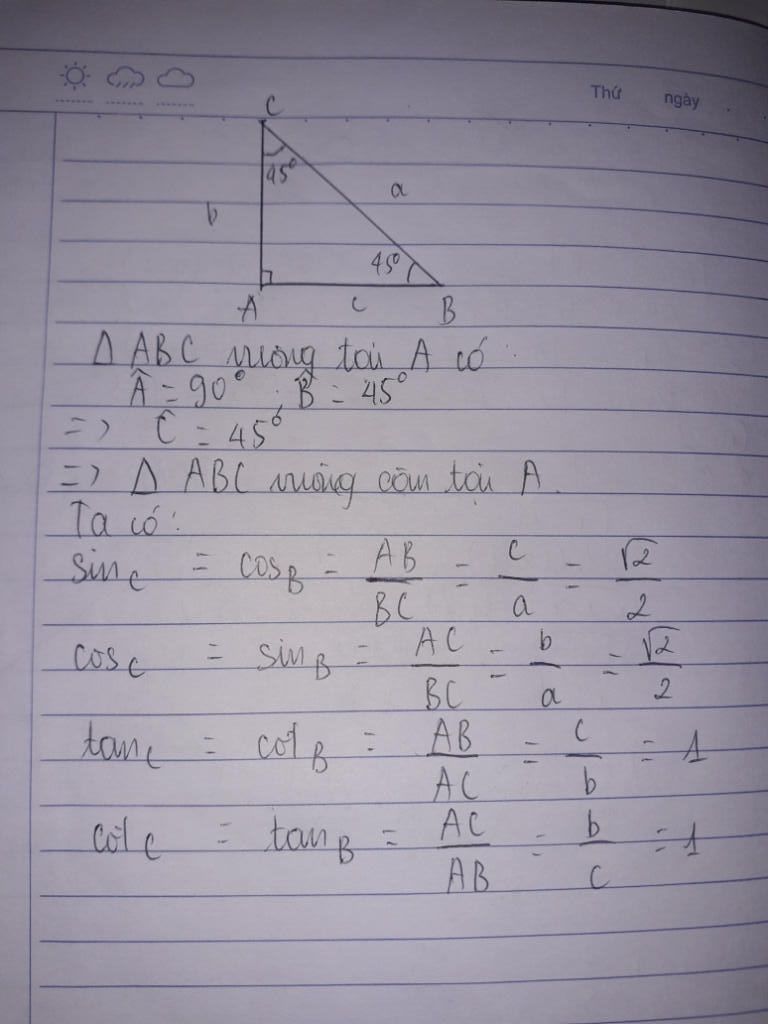 Thứ ngày
C
45°
b
a
45°
A
c
B
Δ ABC vuông tại A có:
Â = 90°; B̂ = 45°
=> Ĉ = 45°
=> Δ ABC vuông cân tại A.
Ta có:
sin_C = cos_B = AB/BC = c/a = √2/2
cos_C = sin_B = AC/BC = b/a = √2/2
tan_C = cot_B = AB/AC = c/b = 1
cot_C = tan_B = AC/AB = b/c = 1